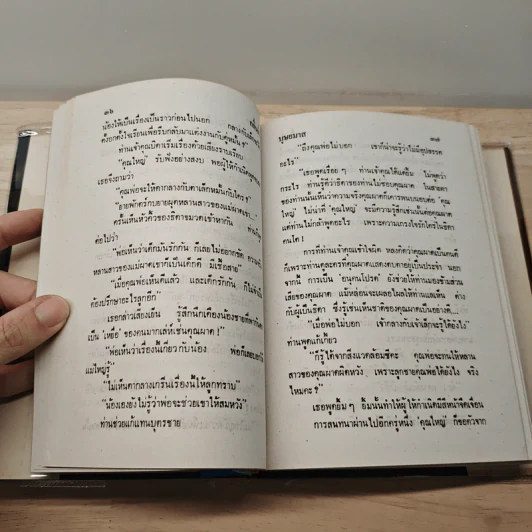 ๑๖
น้องให้เป็นเรื่องเป็นราวก่อนไปนอก กลางกับเล็ก
ตั้งอกตั้งใจเรียนเพื่อรีบกลับมาแต่งงานกับคู่หมั้น ?"
ท่านเจ้าคุณบิดาเริ่มเรื่องด้วยเสียงราบเรียบ
"คุณใหญ่" รับฟังอย่างสงบ
เธอจึงถามว่า
"คุณพ่อจะให้ตากลางกับตาเล็กหมั้นกับใคร ?"
"อายพักตร์กับยายผุดหลานสาวของแม่ผาดเขา..."
ครั้นเห็นหัวคิ้วของธิดาขมวดเข้าหากัน
ต่อไปว่า
"พ่อเห็นว่าเด็กมันรักกัน ก็เลยไม่อยากขัด
หลานสาวของแม่ผาดเขาก็เป็นเด็กดี มีเชื้อสาย"
"เมื่อคุณพ่อเห็นดีแล้ว และเด็กก็รักกัน
ต้องปรึกษาอะไรลูกอีก"
เธอกล่าวเสียงเย็น
เป็น 'เหยื่อ' ของคนมากเล่ห์เช่นคุณผาด !
"พ่อเห็นว่าเรื่องนี้เกี่ยวกับน้อง
แม่ใหญ่รู้"
"ไม่เห็นตากลางเกริ่นเรื่องนี้ให้ลูกทราบ"
"น้องเองยังไม่รู้ว่าพ่อจะช่วยเขาให้สมหวัง"
ท่านช่วยแก้แทนบุตรชาย
บุษยมาส
๑๗
"ถึงคุณพ่อไม่บอก เขาก็น่าจะรู้ว่าไม่มีอุปสรรค
อะไร"
"เธอพูดเรื่อย ๆ ท่านเจ้าคุณได้แต่อึ้ง ไม่พูดว่า
กระไร ท่านรู้ดีว่าธิดาของท่านไม่ชอบคุณผาด ในสายตา
ของท่านนั้นเห็นว่าความจริงคุณผาดก็เคารพนบนอบต่อ 'คุณ
ใหญ่' ไม่น่าที่ 'คุณใหญ่' จะมีความรู้สึกเช่นนั้นต่อคุณผาด
แต่ท่านไม่กล้าพูดอะไร เพราะความเกรงใจรักใคร่ในธิดา
คนโต !
การที่ท่านเจ้าคุณเข้าใจผิด หลงคิดว่าคุณผาดเป็นคนดี
ก็เพราะท่านดูละครที่คุณผาดแสดงตบตาอยู่เป็นประจำ นอก
จากนี้ การเป็น 'อนุคนโปรด' ยังช่วยให้ท่านมองข้ามส่วน
เสียของคุณผาด แม้หล่อนจะเผลอไผลให้ท่านแลเห็น ต่าง
กับผู้เป็นธิดา ซึ่งรู้เช่นเห็นชาติของคุณผาดเป็นอย่างดี...
"เมื่อพ่อไม่บอก เจ้ากลางกับเจ้าเล็กจะรู้ได้ยังไง"
ท่านพูดแก้เกี้ยว
"ก็รู้ได้จากสังแวดล้อมซีคะ คุณพ่อจะทนให้หลาน
สาวของคุณผาดผิดหวัง เพราะลูกชายคุณพ่อได้ยังไง จริง
ไหมคะ ?"
เธอพูดยิ้ม ๆ ยิ้มนั้นทำให้ผู้ให้กำเนิดมีสีหน้าจืดเจื่อน
การสนทนาผ่านไปอีกครู่หนึ่ง 'คุณใหญ่' ก็ขอตัวจาก